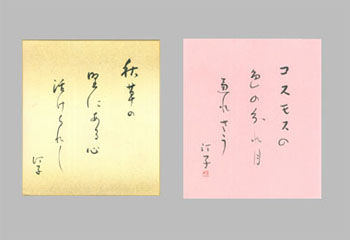 秋草の
野にある心
活けられし
汀子
コスモスの
色の分れ目
通れさう
汀子